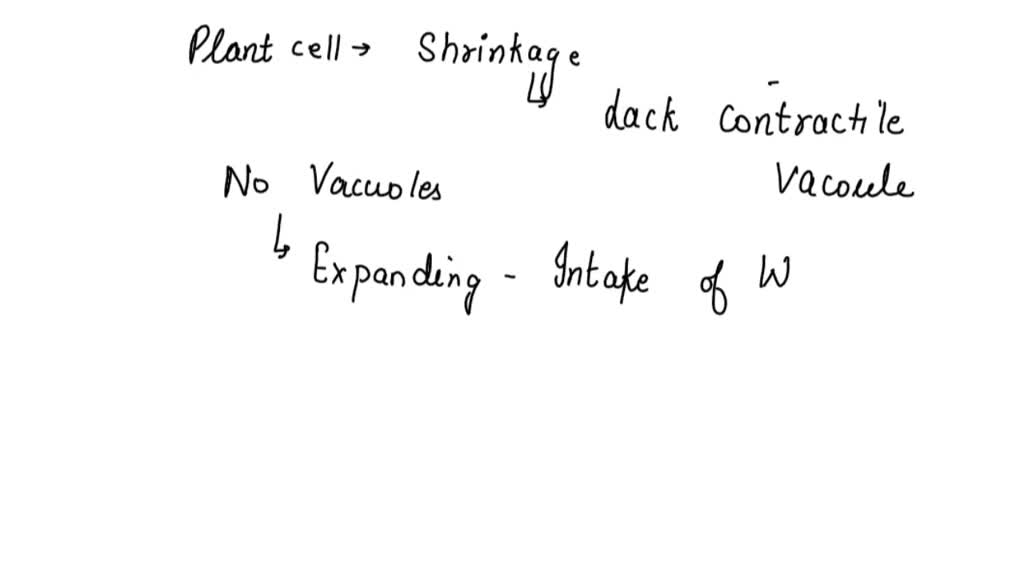 Plant cell → Shrinkage
↳ dack contractile
No Vacuoles vacoule
↳ Expanding - Intake of W